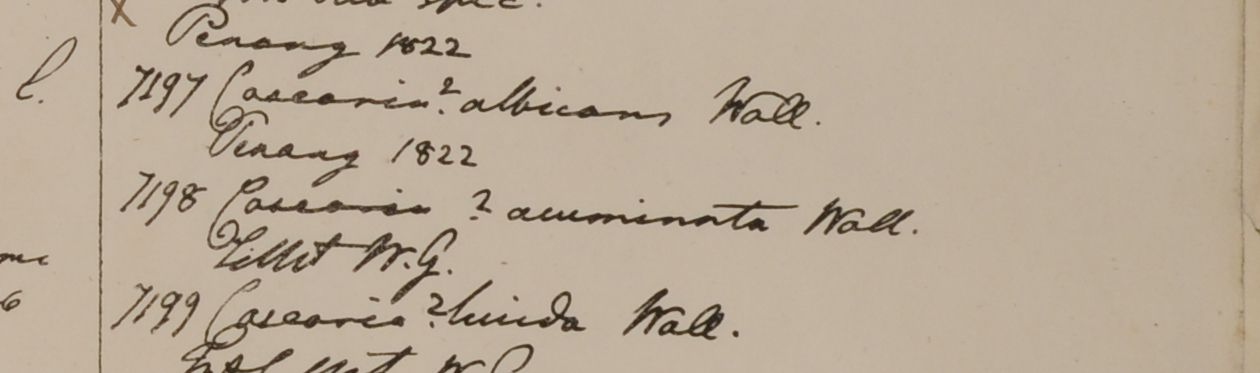 spec.
Penang 1822
l. 7197 Casearia? albicans Wall.
Penang 1822
7198 Casearia ? acuminata Wall.
Sillet W.G.
7199 Casearia ? lucida Wall.